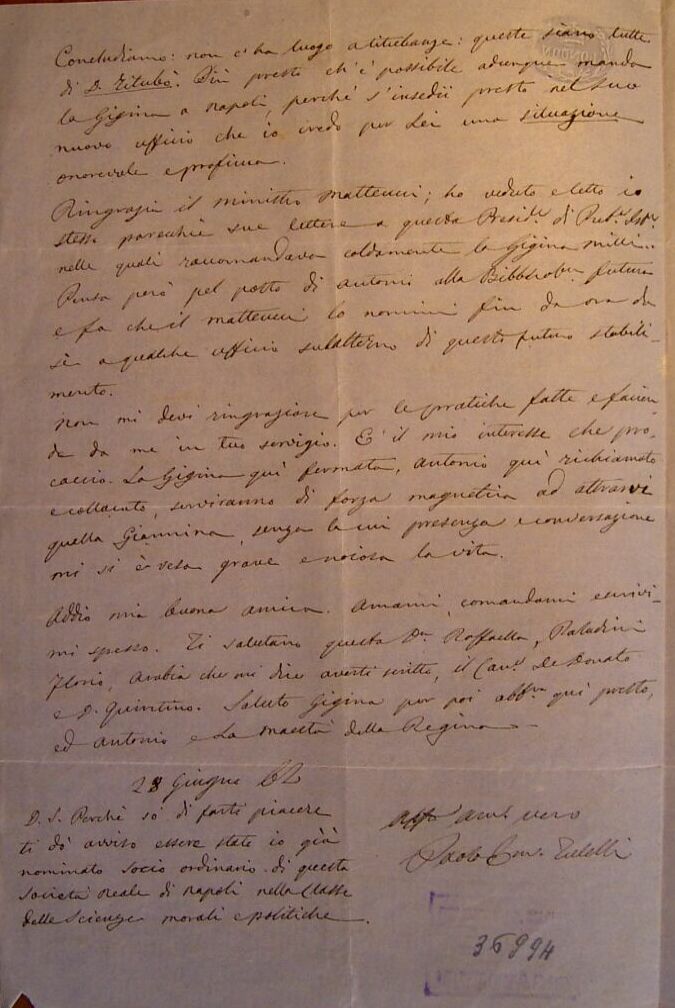 Concludiamo: non c'ha luogo a titubanze: queste siano tutte
di D. Titubò. Più presto ch'è possibile adunque manda
la Gigina a Napoli, perché s'insedii presto nel suo
nuovo ufficio che io credo per Lei una situazione
onorevole e proficua.
Ringrazia il ministro Matteucci; ho veduto e letto io
stesso parecchie sue lettere a questa Presid.ᵃ di Pub.ᵃ Ist.ᵉ
nelle quali raccomandava caldamente la Gigina Milli.
Pensa però pel posto di Antonio alla futura
e fa che il Matteucci lo nomini fin da ora da
sè a qualche ufficio subalterno di questo futuro stabili-
mento.
Non mi devi ringraziare per le pratiche fatte e facien-
de da me in tuo servigio. E' il mio interesse che pro-
caccio. La Gigina quì fermata, Antonio quì richiamato
e collocato, serviranno di forza magnetica ad attrarvi
quella Giannina, senza la cui presenza e conversazione
mi si è resa grave e noiosa la vita.
Addio mia buona amica. Amami, comandami e scrivi-
mi spesso. Ti salutano questa D.ᵃ Raffaella, Paladini
Florio, Arabia che mi dice averti scritto, il Can.ᶜᵒ De Donato
e D. Quintino. Saluto Gigina per poi quì presto,
ed Antonio e La Maestà della Regina
28 Giugno 62
D. S. Perchè so di farti piacere
ti dò avviso essere stato io già
nominato socio ordinario di questa
Società Reale di Napoli nella Classe
delle Scienze morali e politiche.
Aff. am. vero
Paolo Em. Tulelli
36994